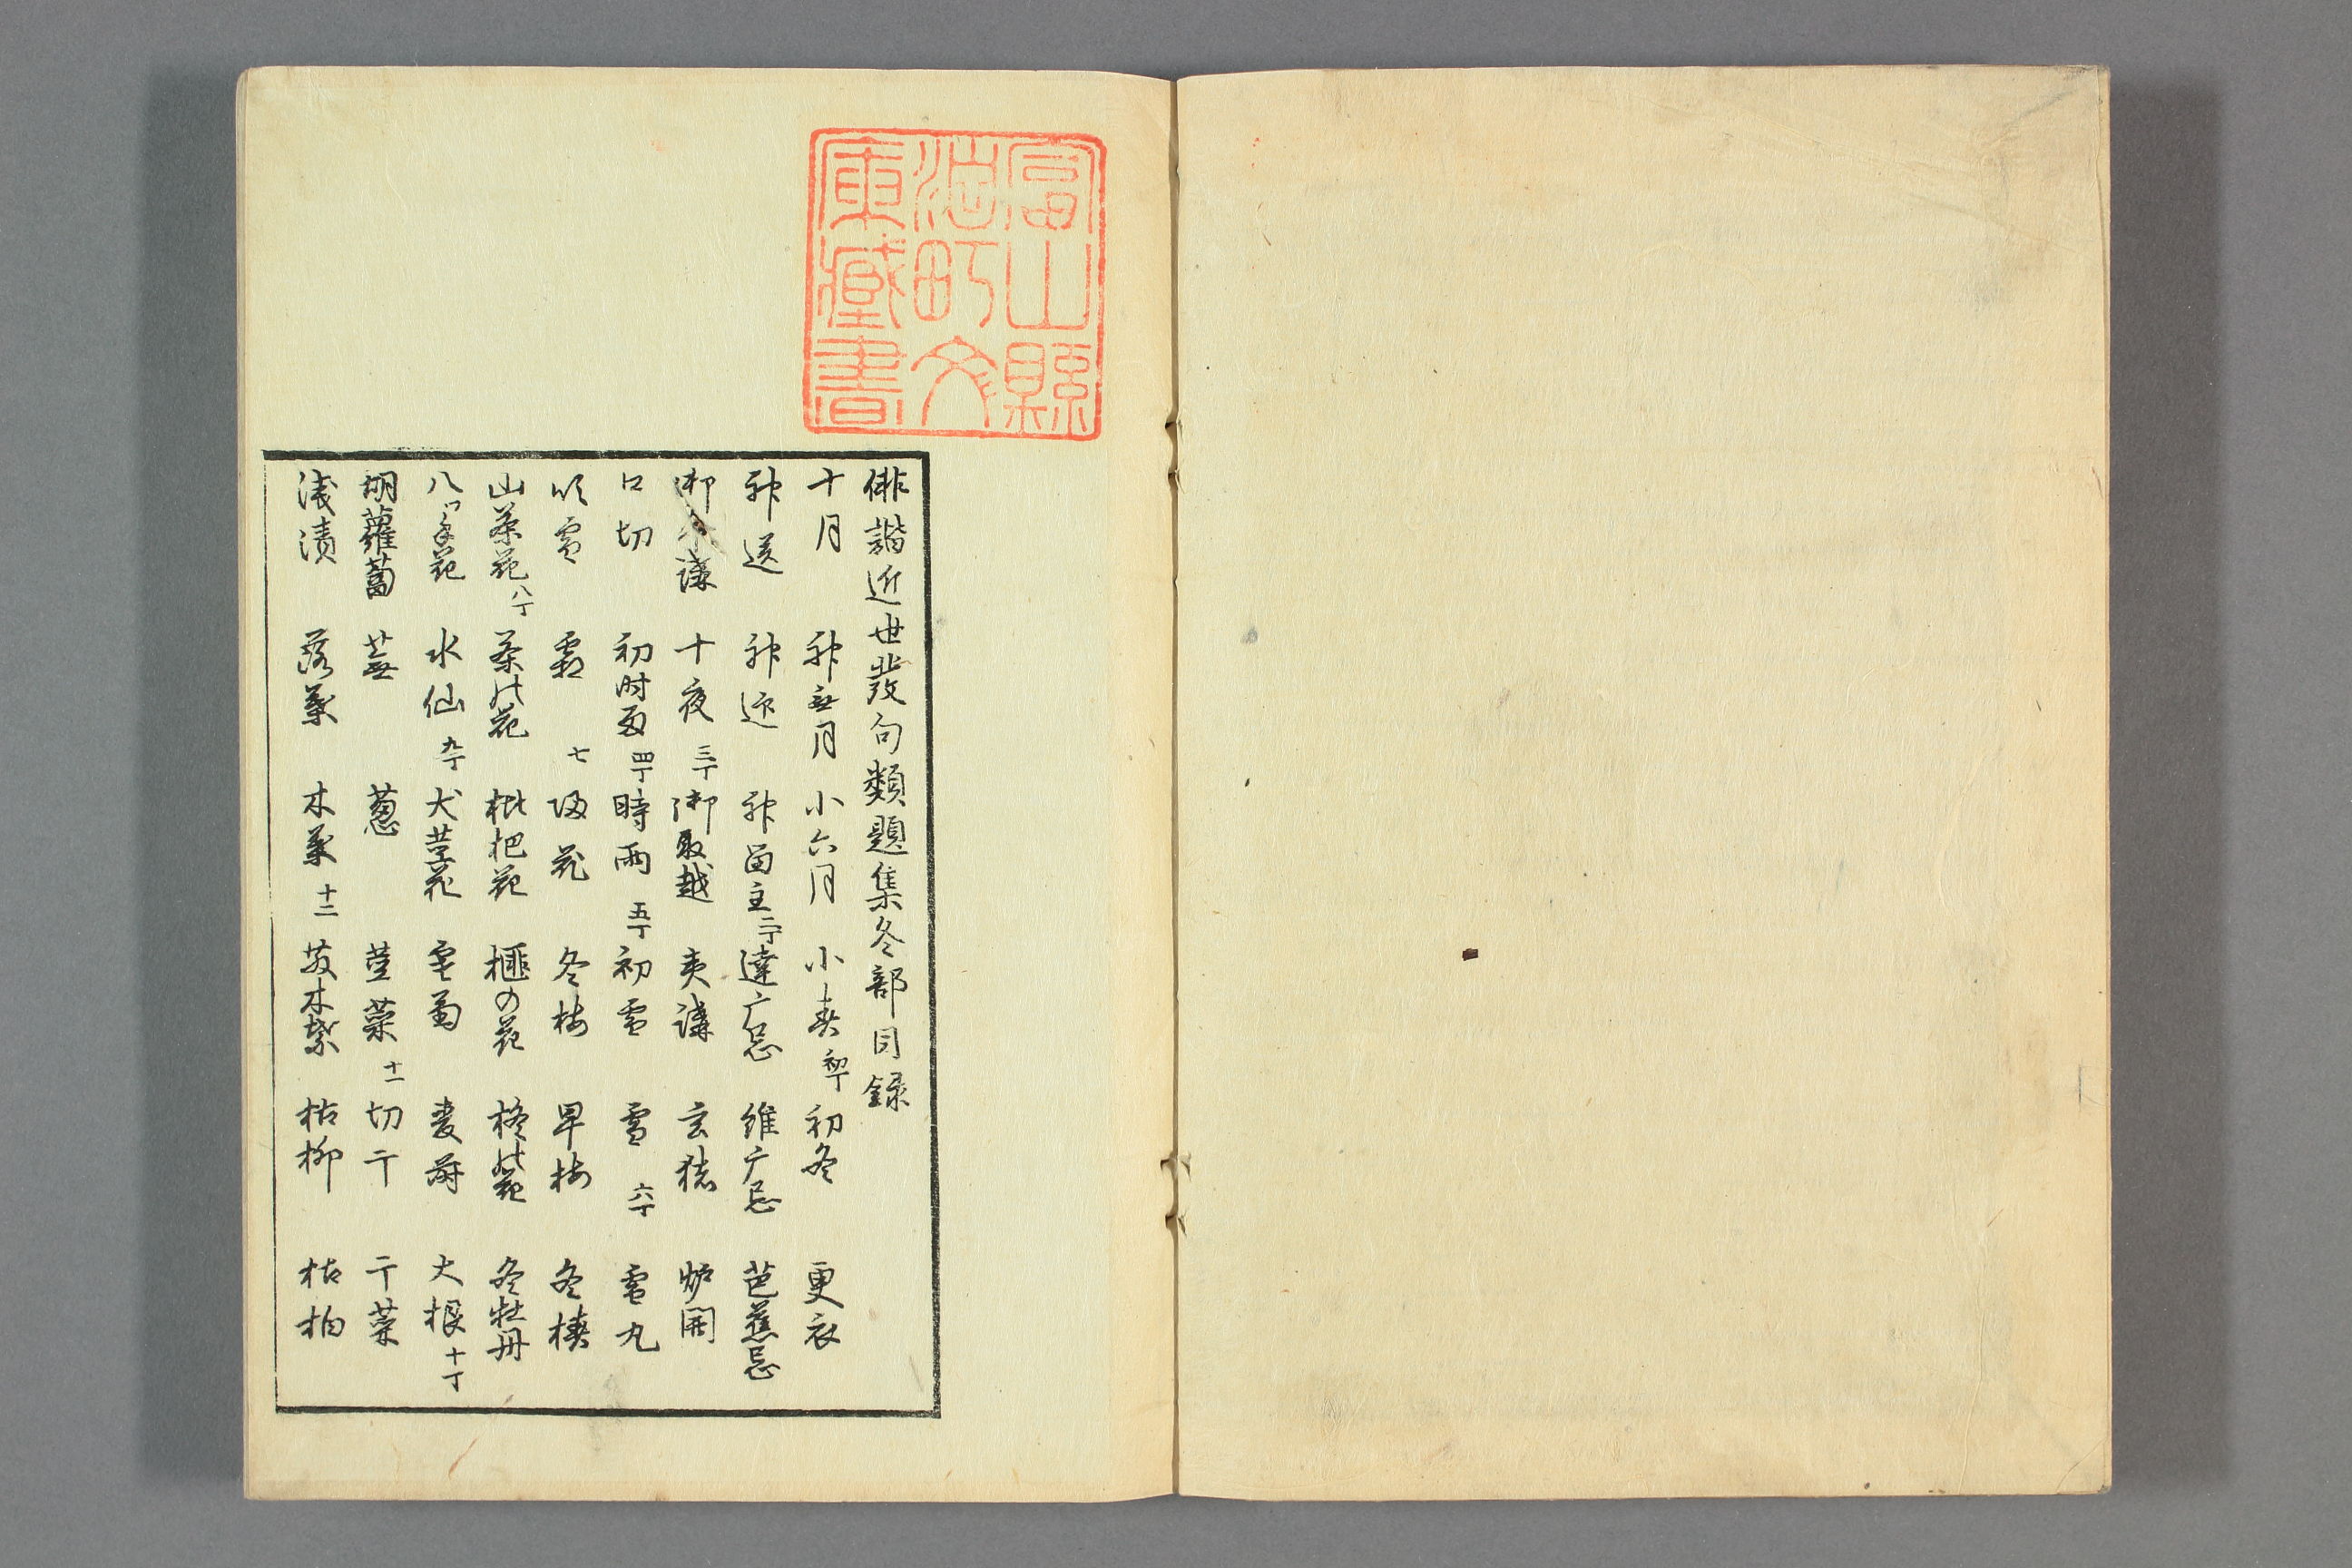 富山縣
泊町文
庫藏書
俳諧近世發句類題集冬部目録
十月 神無月 小六月 小春 初丁 初冬 更衣
神送 神迎 神留主 二丁 達广忌 維广忌 芭蕉忌
御 講 十夜 三丁 御取越 夷講 玄猪 炉開
口切 初时雨 四丁 時雨 五丁 初雪 雪 六丁 雪丸
吹雪 霜 七 帰花 冬梅 早梅 冬椿
山茶花 八丁 茶の花 枇杷花 榧の花 柊の花 冬牡丹
八ツ手花 水仙 九丁 犬茎花 寒菊 麦蒔 大根 十丁
胡蘿蔔 蕪 葱 莖菜 十一 切干 干菜
浅漬 落葉 木葉 十二 落木紫 枯柳 枯柏